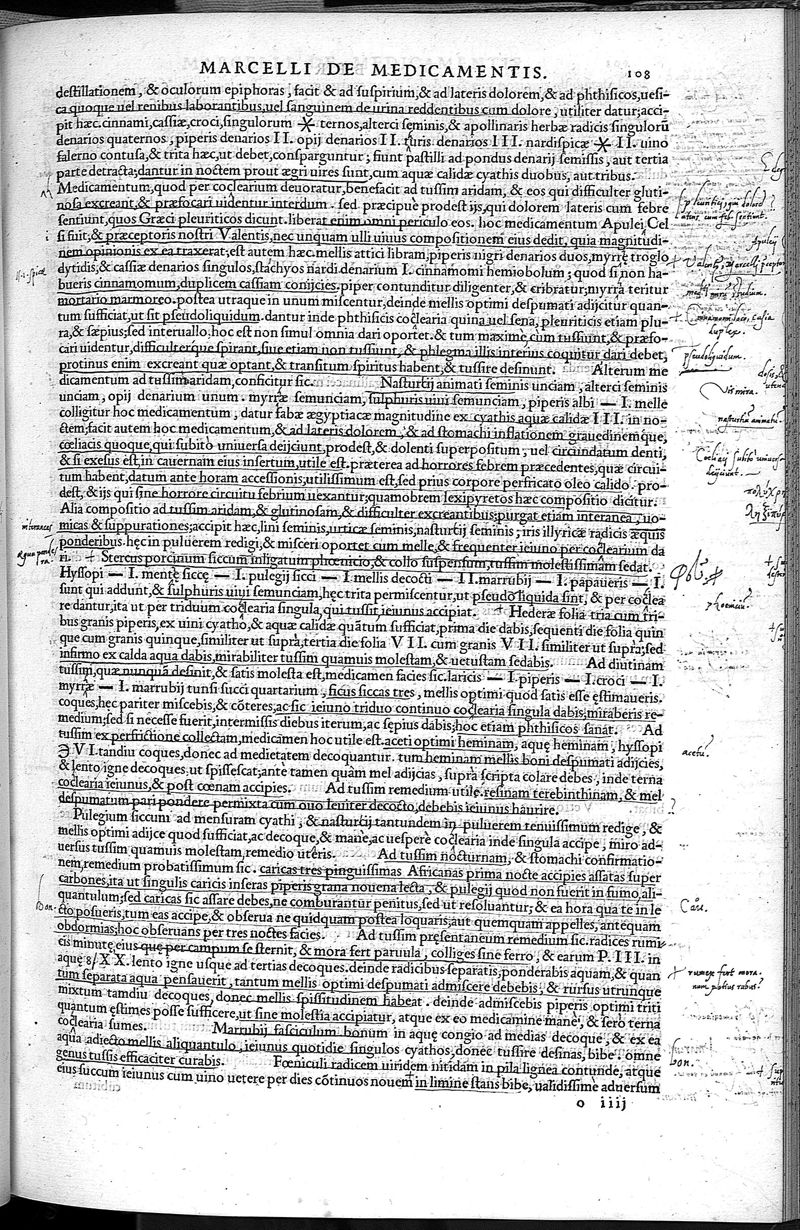 MARCELLI DE MEDICAMENTIS. 108
destillationem, & oculorum epiphoras, facit & ad suspirium, & ad lateris dolorem, & ad phthisicos, uesi-
ca quoque uel renibus laborantibus, uel sanguinem de urina reddentibus cum dolore, utiliter datur; acci-
pit hæc. cinnami, cassiæ, croci, singulorum ternos, alterci seminis, & apollinaris herbæ radicis singulorũ
denarios quaternos, piperis denarios II. opij denarios II. turis denarios III. nardispicæ II. uino
falerno contusa, & trita hæc, ut debet, consparguntur; fiunt pastilli ad pondus denarij semissis, aut tertia
parte detracta; dantur in noctem prout ægri uires sunt, cum aquæ calidæ cyathis duobus, aut tribus.
Medicamentum, quod per coclearium deuoratur, benefacit ad tussim aridam, & eos qui difficulter gluti-
nosa excreant, & præfocari uidentur interdum. sed præcipue prodest ijs, qui dolorem lateris cum febre
sentiunt, quos Græci pleuriticos dicunt. liberat enim omni periculo eos. hoc medicamentum Apulei Cel
si fuit; & præceptoris nostri Valentis, nec unquam ulli uiuus compositionem eius dedit, quia magnitudi-
nem opinionis ex ea traxerat; est autem hæc. mellis attici libram; piperis nigri denarios duos, myrrę troglo
dytidis, & cassiæ denarios singulos, stachyos nardi denarium I. cinnamomi hemiobolum; quod si non ha-
bueris cinnamomum, duplicem cassiam conijcies. piper contunditur diligenter, & cribratur; myrra teritur
mortario marmoreo. postea utraque in unum miscentur, deinde mellis optimi despumati adijcitur quan-
tum sufficiat, ut sit pseudoliquidum. dantur inde phthisicis coclearia quina uel sena, pleuriticis etiam plu-
ra, & sæpius; sed interuallo. hoc est non simul omnia dari oportet. & tum maxime cum tussiunt, & præfo-
cari uidentur, difficulterque spirant, siue etiam non tussiunt, & phlegma illis interius coquitur dari debet,
protinus enim excreant quæ optant, & transitum spiritus habent, & tussire desinunt. Alterum me
dicamentum ad tussim aridam, conficitur sic. Nasturtij animati seminis unciam, alterci seminis
unciam, opij denarium unum. myrræ semunciam, sulphuris uiui semunciam, piperis albi — I. melle
colligitur hoc medicamentum, datur fabæ ægyptiacæ magnitudine ex cyathis aquæ calidæ III. in no-
ctem; facit autem hoc medicamentum, & ad lateris dolorem, & ad stomachi inflationem grauedinemque,
cœliacis quoque, qui subito uniuersa deijciunt, prodest, & dolenti superpositum, uel circundatum denti,
& si exesus est, in cauernam eius insertum, utile est. præterea ad horrores febrem præcedentes, quæ circui-
tum habent, datum ante horam accessionis; utilissimum est, sed prius corpore perfricato oleo calido. pro-
dest, & ijs qui sine horrore circuitu febrium uexantur; quamobrem lexipyretos hæc compositio dicitur.
Alia compositio ad tussim aridam, & glutinosam, & difficulter excreantibus; purgat etiam interanea, uo-
micas & suppurationes; accipit hæc, lini seminis, urticæ seminis, nasturtij seminis, iris illyricæ radicis æquis
ponderibus. hęc in puluerem redigi, & misceri oportet cum melle, & frequenter ieiuno per coclearium da
ri. Stercus porcinum siccum inligatum phœnicio, & collo suspensum, tussim molestissimam sedat.
Hyssopi — I. mentę siccę — I. pulegij sicci — I. mellis decocti — II. marrubij — I. papaueris — I.
sunt qui addunt, & sulphuris uiui semunciam, hęc trita permiscentur, ut pseudoliquida sint, & per coclea
re dantur, ita ut per triduum coclearia singula, qui tussit ieiunus accipiat. Hederæ folia tria cum tri-
bus granis piperis, ex uini cyatho, & aquæ calidæ quãtum sufficiat, prima die dabis, sequenti die folia quin
que cum granis quinque, similiter ut supra; tertia die folia VII. cum granis VII. similiter ut supra; sed
infirmo ex calda aqua dabis, mirabiliter tussim quamuis molestam, & uetustam sedabis. Ad diutinam
tussim, quæ nunquã desinit, & satis molesta est, medicamen facies sic. laricis — I. piperis — I. croci — I.
myrræ — I. marrubij tunsi succi quartarium, ficus siccas tres, mellis optimi quod satis esse ęstimaueris.
coques, hec pariter miscebis, & cõteres; ac sic ieiuno triduo continuo coclearia singula dabis; miraberis re-
medium; sed si necesse fuerit, intermissis diebus iterum, ac sępius dabis; hoc etiam phthisicos sanat. Ad
tussim ex perfrictione collectam, medicamen hoc utile est. aceti optimi heminam, aquę heminam, hyssopi
VI. tandiu coques, donec ad medietatem decoquantur. tum heminam mellis boni despumati adijcies,
& lento igne decoques, ut spissescat; ante tamen quàm mel adijcias, supra scripta colare debes, inde terna
coclearia ieiunus, & post cœnam accipies. Ad tussim remedium utile. resinam terebinthinam, & mel
despumatum pari pondere permixta cum ouo leniter decocto, debebis ieiunus haurire.
Pulegium siccum ad mensuram cyathi, & nasturtij tantundem in puluerem tenuissimum redige, &
mellis optimi adijce quod sufficiat, ac decoque, & mane, ac uespere coclearia inde singula accipe, miro ad-
uersus tussim quamuis molestam, remedio uteris. Ad tussim nocturnam, & stomachi confirmatio-
nem, remedium probatissimum sic. caricas tres pinguissimas Africanas prima nocte accipies assatas super
carbones, ita ut singulis caricis inseras piperis grana nouena lecta, & pulegij quod non fuerit in fumo, ali-
quantulum; sed caricas sic assare debes, ne comburantur penitus, sed ut resoluantur; & ea hora qua te in le
cto posueris, tum eas accipe, & obserua ne quidquam postea loquaris; aut quemquam appelles, antequam
obdormias; hoc obseruans per tres noctes facies. Ad tussim pręsentaneum remedium sic. radices rumi-
cis minutę, eius que per campum se sternit, & mora fert paruula, colliges sine ferro, & earum P. III. in
aquę XX. lento igne usque ad tertias decoques. deinde radicibus separatis, ponderabis aquam, & quan
tum separata aqua pensauerit, tantum mellis optimi despumati admiscere debebis, & rursus utrunque
mixtum tamdiu decoques, donec mellis spissitudinem habeat. deinde admiscebis piperis optimi triti
quantum ęstimes posse sufficere, ut sine molestia accipiatur, atque ex eo medicamine mane, & sero terna
coclearia sumes. Marrubij fasciculum bonum in aquę congio ad medias decoque, & ex ea
aqua adiecto mellis aliquantulo, ieiunus quotidie singulos cyathos, donec tussire desinas, bibe. omne
genus tussis efficaciter curabis. Fœniculi radicem uiridem nitidam in pila lignea contunde, atque
eius succum ieiunus cum uino uetere per dies cõtinuos nouem in limine stans bibe, ualidissime aduersum
o iiij
pseudoliquidum.
Vis mira.
phoeniciũ.
acetũ.
rumex fert mora.
num potius rubus?